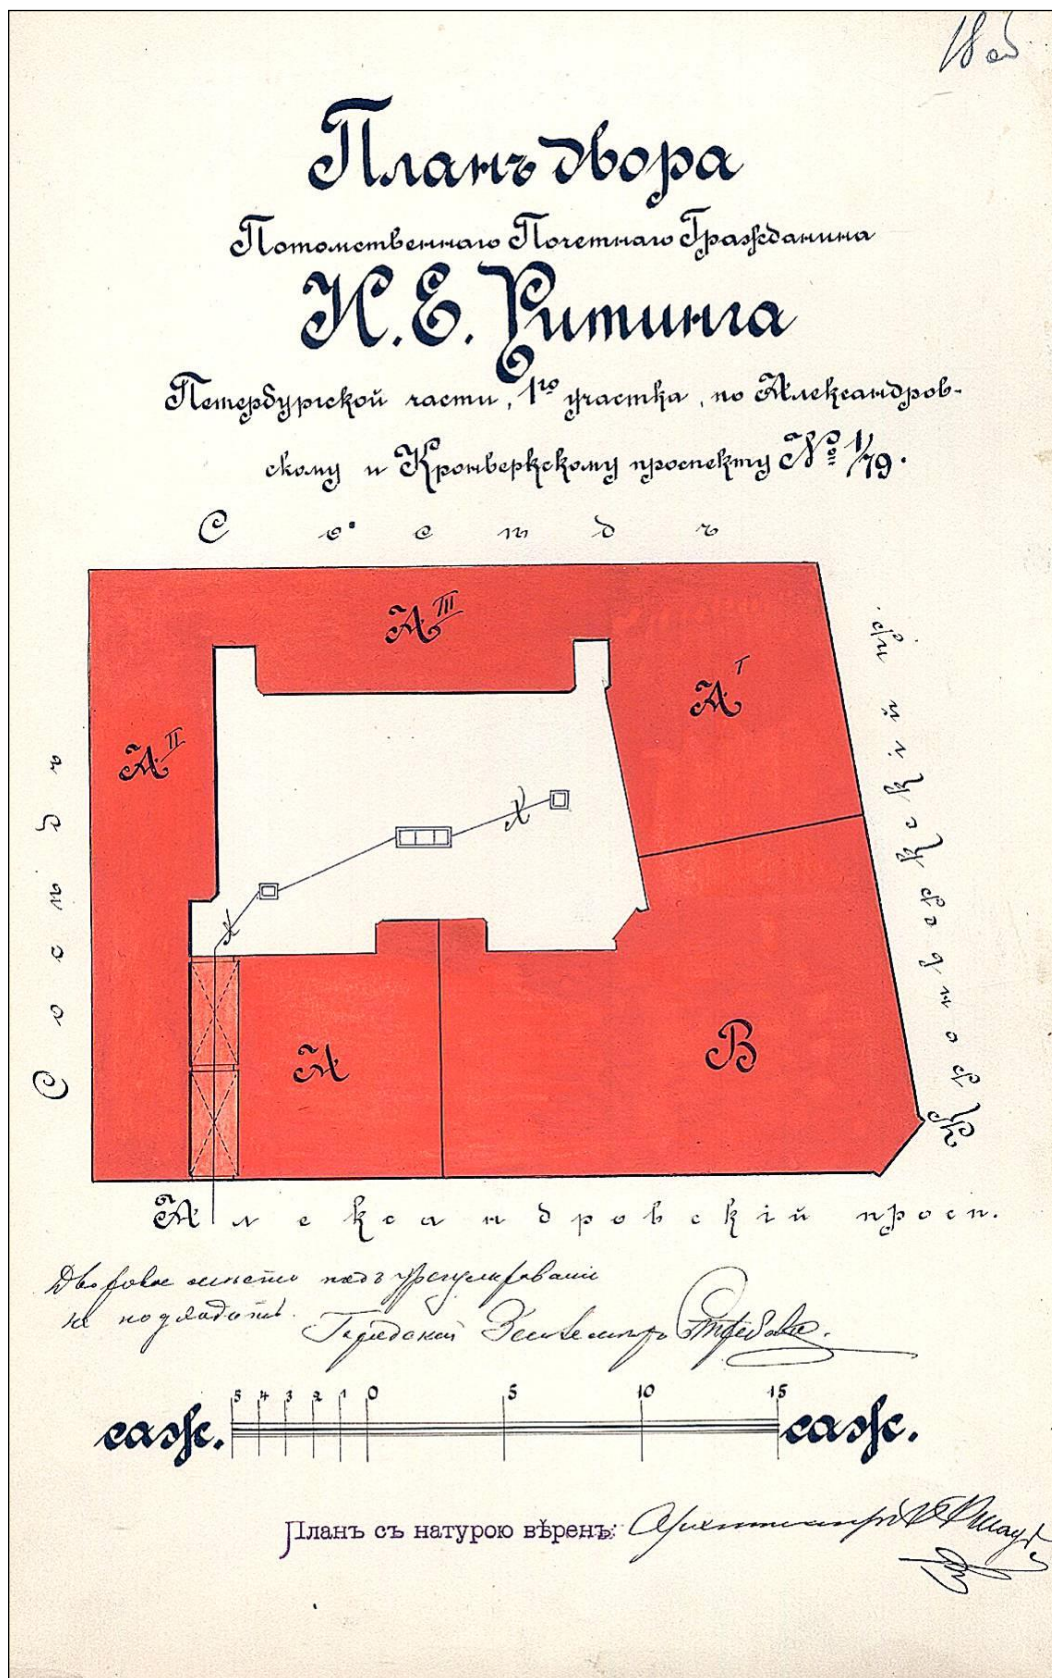 18 об
Планъ двора
Потомственнаго Почетнаго Гражданина
К. Е. Ритинга
Петербургской части, 1го участка, по Александров-
скому и Кронверкскому проспекту № 1/79.
Сосѣдъ
А III
А I
А II
Сосѣдъ
Кронверкскій пр.
Х
Х
А
В
Александровскій просп.
Дворовое мѣсто подъ урегулированіе
не подходитъ.
Городской Землемѣръ
5 4 3 2 1 0 5 10 15
саж. саж.
Планъ съ натурою вѣренъ: Архитекторъ В Шаубъ